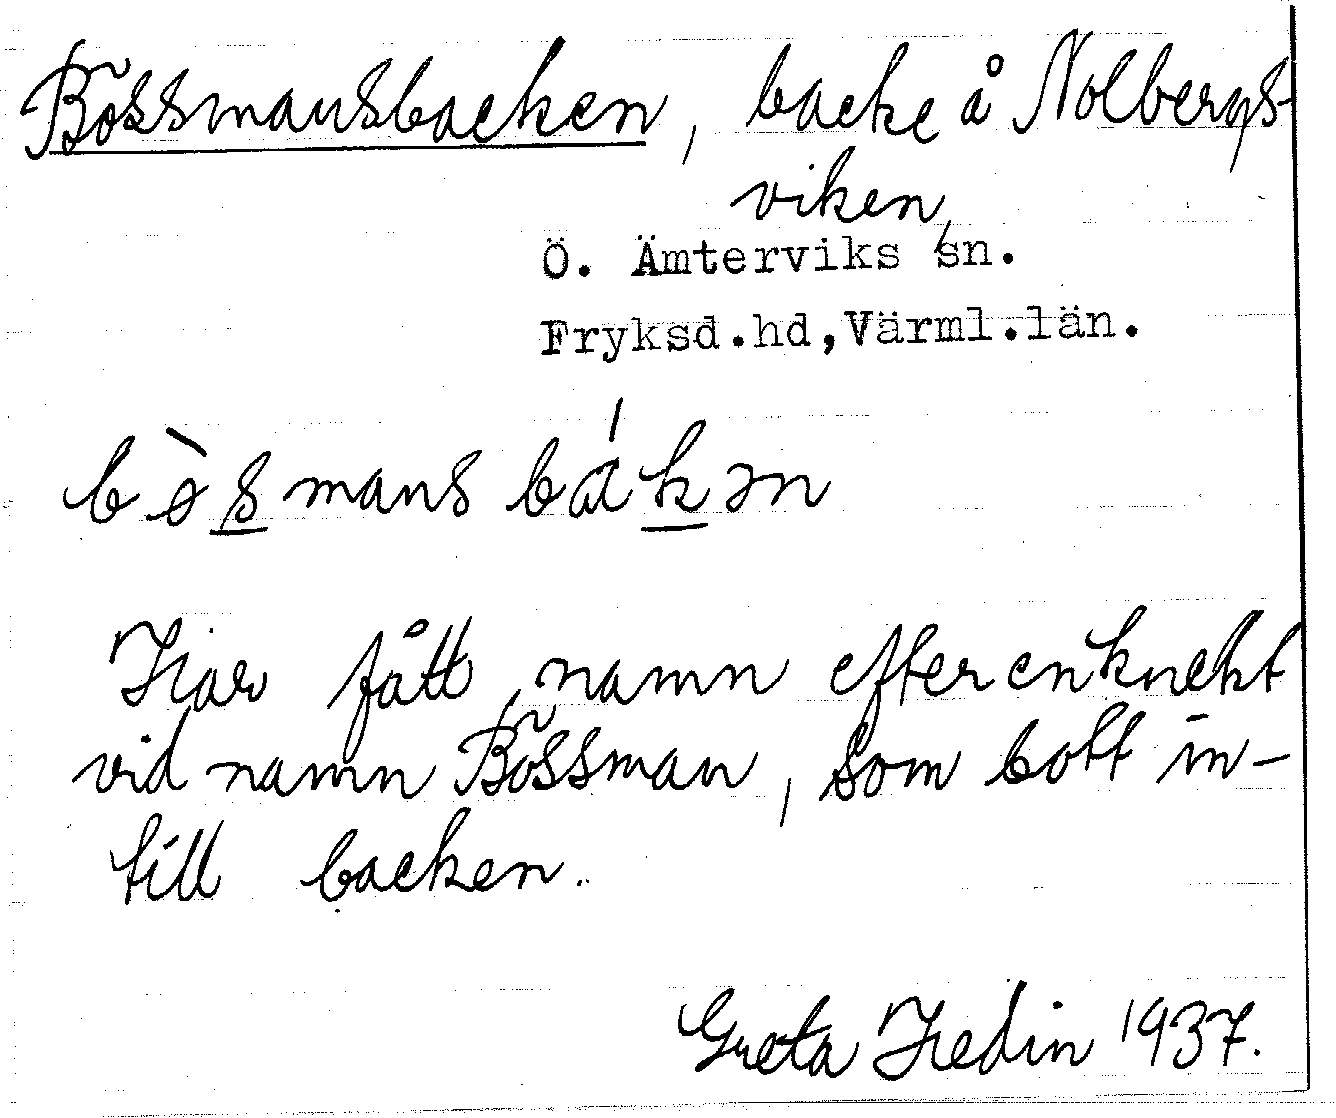 Bössmansbacken, backe å Nolbergs-
viken,
Ö. Ämterviks sn.
Fryksd.hd,Värml.län.
bø̀smans bákən
Har fått namn efter en knekt
vid namn Bössman, som bott in-
till backen.
Greta Hedin 1937.